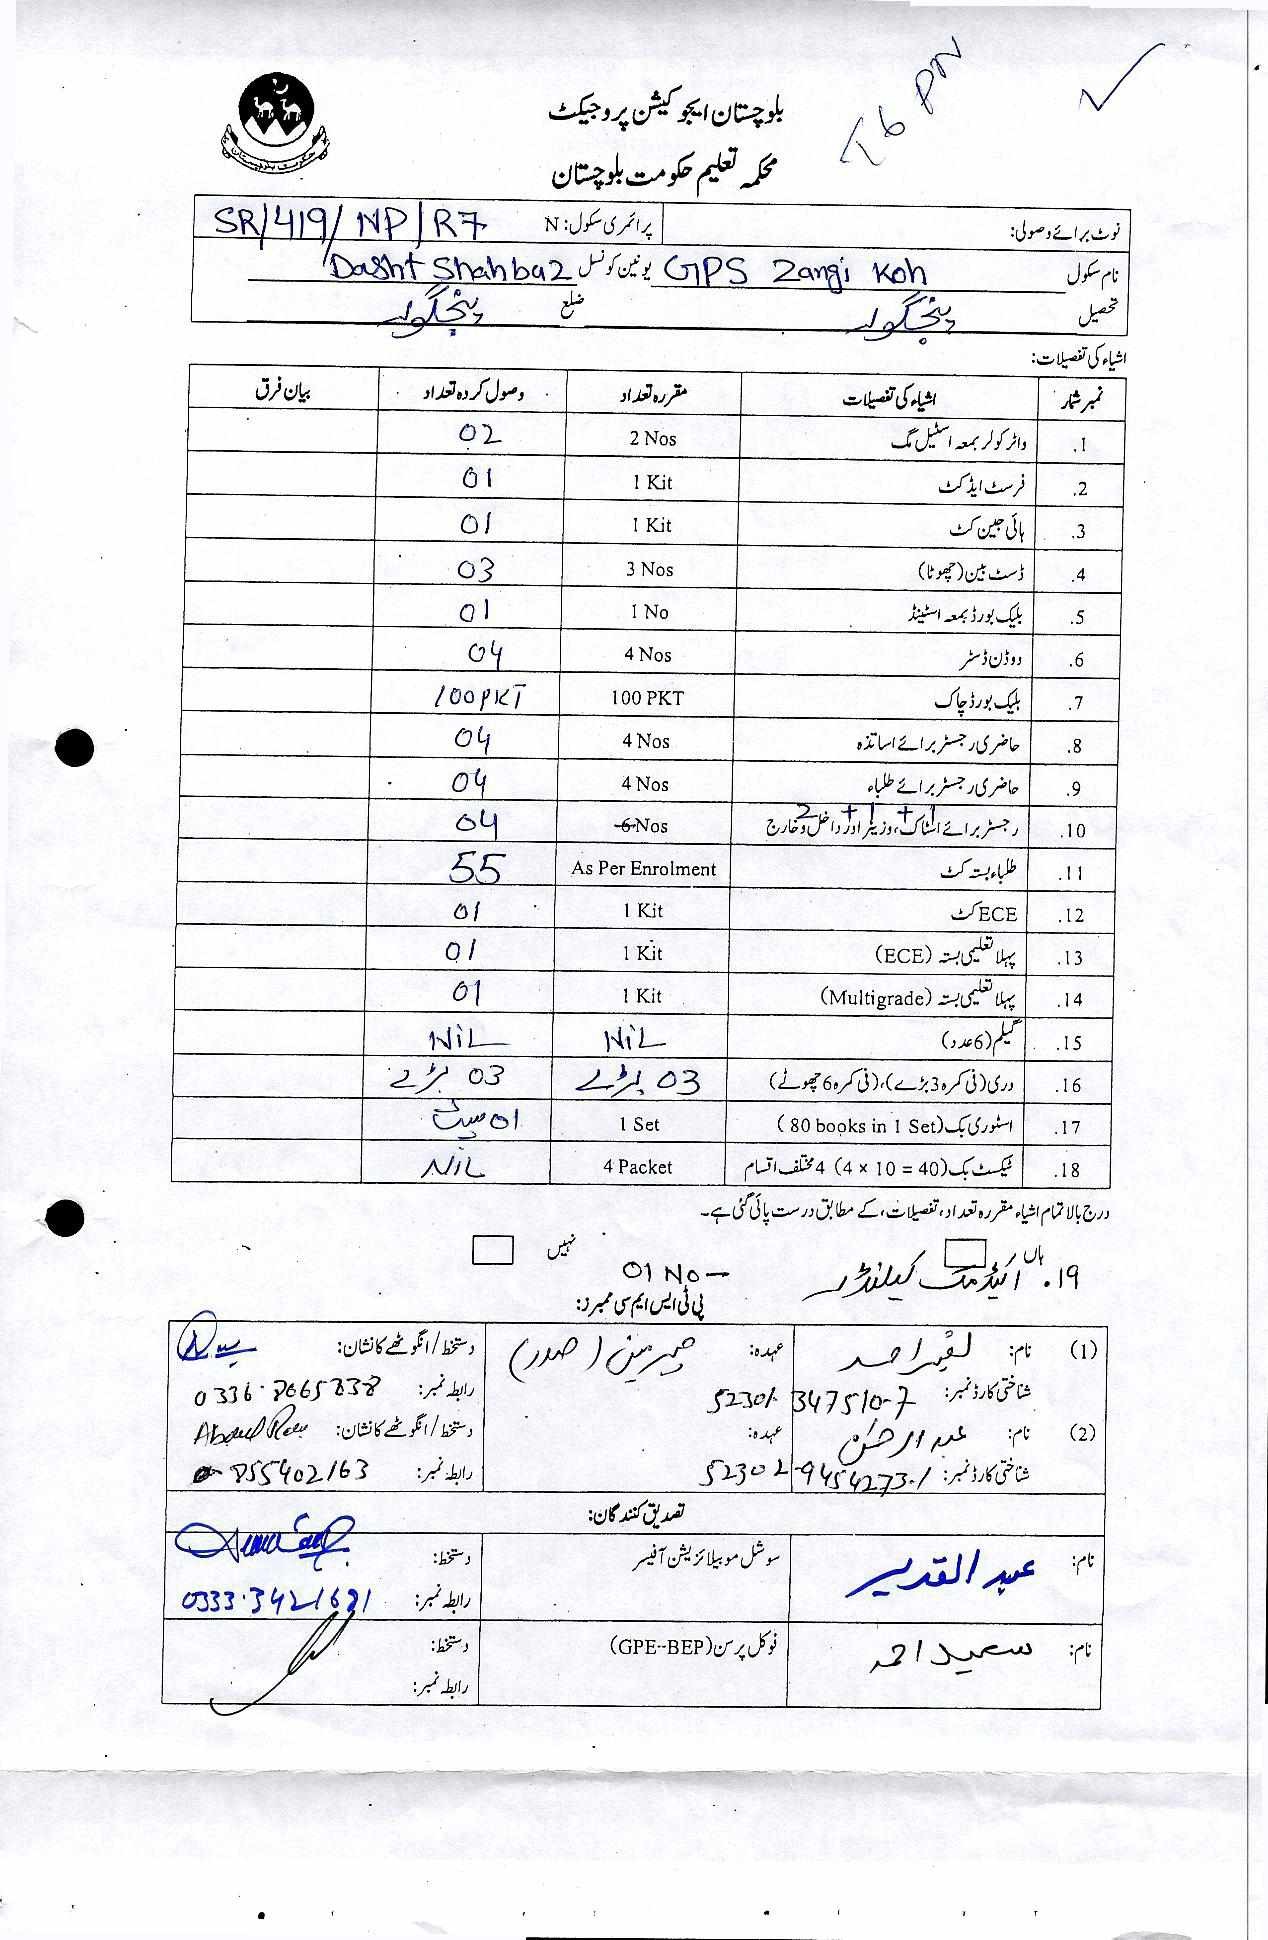 T6 PN
حکومت بلوچستان
بلوچستان ایجوکیشن پروجیکٹ
محکمہ تعلیم حکومت بلوچستان
نوٹ برائے وصولی: پرائمری سکول: N SR/419/NP/R7
نام سکول GPS Zangi Koh یونین کونسل Dasht Shahbaz
تحصیل پنجگور ضلع پنجگور
اشیاء کی تفصیلات:
نمبر شمار اشیاء کی تفصیلات مقررہ تعداد وصول کردہ تعداد بیان فرق
1. واٹر کولر بمعہ اسٹیل مگ 2 Nos 02
2. فرسٹ ایڈ کٹ 1 Kit 01
3. ہائی جین کٹ 1 Kit 01
4. ڈسٹ بین (چھوٹا) 3 Nos 03
5. بلیک بورڈ بمعہ اسٹینڈ 1 No 01
6. ووڈن ڈسٹر 4 Nos 04
7. بلیک بورڈ چاک 100 PKT 100 PKT
8. حاضری رجسٹر برائے اساتذہ 4 Nos 04
9. حاضری رجسٹر برائے طلباء 4 Nos 04
2 + 1 + 1
10. رجسٹر برائے اسٹاک، وزیٹر اور داخل و خارج 6 Nos 04
11. طلباء بستہ کٹ As Per Enrolment 55
12. ECE کٹ 1 Kit 01
13. پہلا تعلیمی بستہ (ECE) 1 Kit 01
14. پہلا تعلیمی بستہ (Multigrade) 1 Kit 01
15. گلیم (6 عدد) NiL NiL
16. دری (فی کمرہ 3 بڑے)، (فی کمرہ 6 چھوٹے) 03 بڑے 03 بڑے
17. اسٹوری بک (80 books in 1 Set) 1 Set 01 سیٹ
18. ٹیکسٹ بک (4 × 10 = 40) 4 مختلف اقسام 4 Packet NiL
درج بالا تمام اشیاء مقررہ تعداد، تفصیلات، کے مطابق درست پائی گئی ہے۔
ہاں نہیں
19. کیلنڈر 01 No
پی ٹی ایس ایم سی ممبرز:
(1) نام: احمد عہدہ: چیرمین (صدر) دستخط/انگوٹھے کا نشان:
شناختی کارڈ نمبر: 52301-347510-7 رابطہ نمبر: 0336-8065838
(2) نام: عبدالرحمن عہدہ: دستخط/انگوٹھے کا نشان:
شناختی کارڈ نمبر: 52302-9454273-1 رابطہ نمبر: 855402163
تصدیق کنندگان:
نام: عبدالقدیر سوشل موبیلائزیشن آفیسر دستخط:
رابطہ نمبر: 0333-3421681
نام: سعید احمد فوکل پرسن (GPE-BEP) دستخط:
رابطہ نمبر: